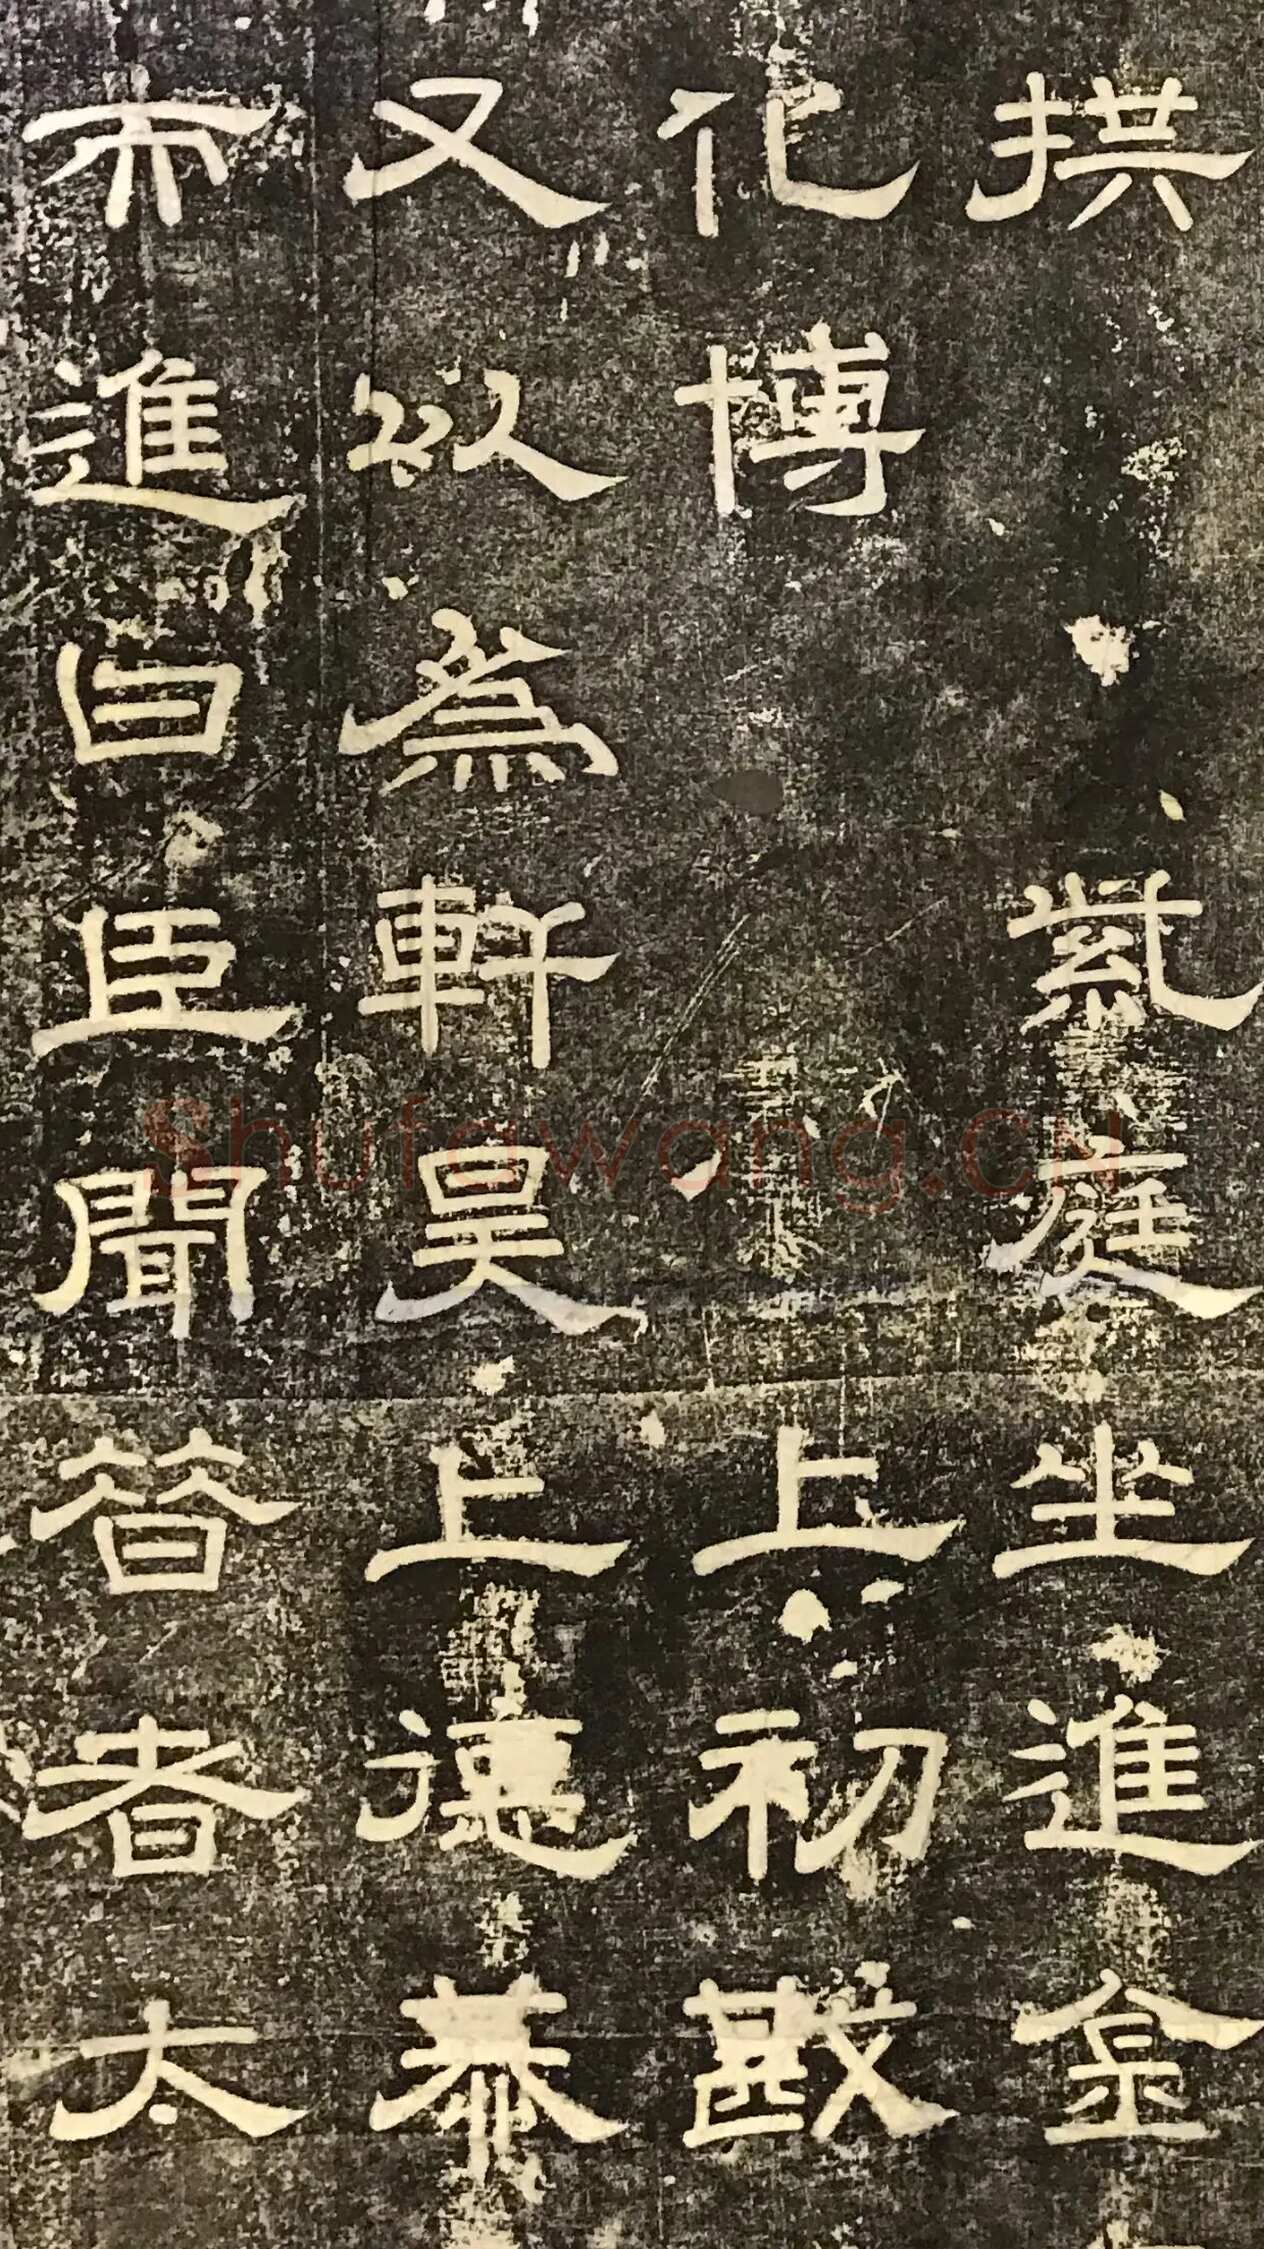 拱 紫庭坐進金
化博 上初戡
又以為軒昊上德
而進曰臣聞昔者太
Shufawang.CN